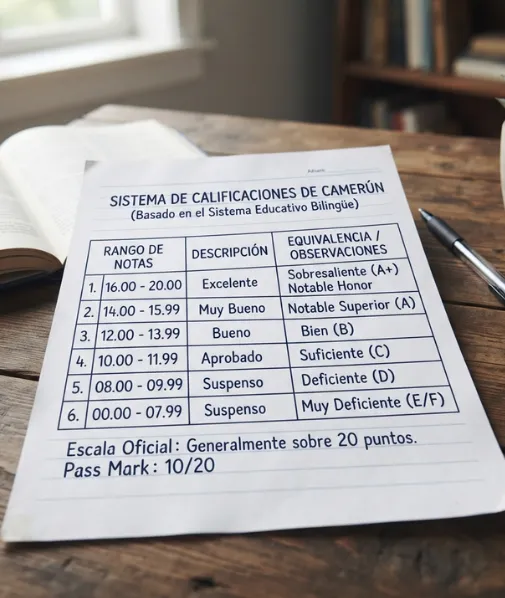 SISTEMA DE CALIFICACIONES DE CAMERÚN
(Basado en el Sistema Educativo Bilingüe)
RANGO DE NOTAS | DESCRIPCIÓN | EQUIVALENCIA / OBSERVACIONES
1. | 16.00 - 20.00 | Excelente | Sobresaliente (A+) Notable Honor
2. | 14.00 - 15.99 | Muy Bueno | Notable Superior (A)
3. | 12.00 - 13.99 | Bueno | Bien (B)
4. | 10.00 - 11.99 | Aprobado | Suficiente (C)
5. | 08.00 - 09.99 | Suspenso | Deficiente (D)
6. | 00.00 - 07.99 | Suspenso | Muy Deficiente (E/F)
Escala Oficial: Generalmente sobre 20 puntos.
Pass Mark: 10/20